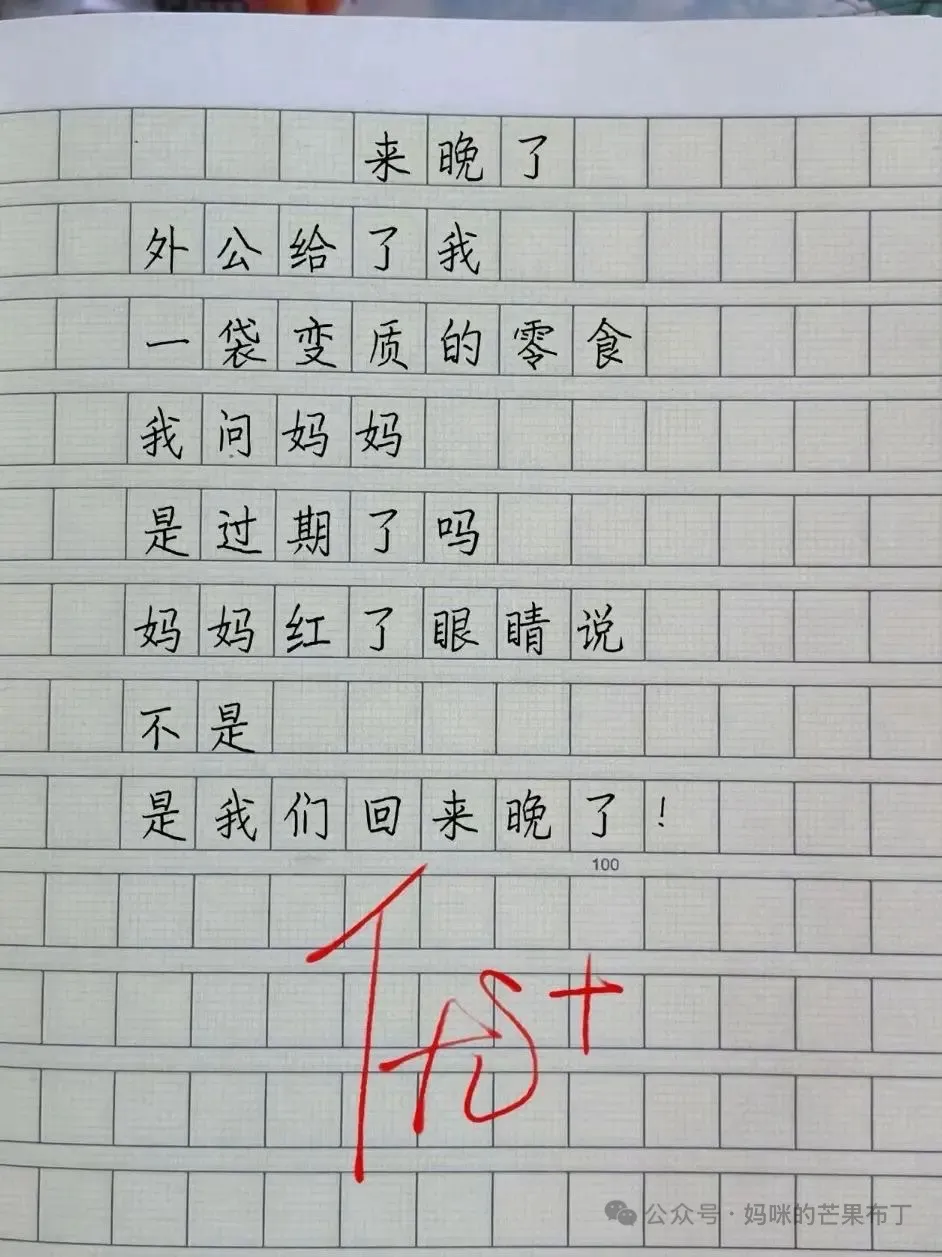 来晚了
外公给了我
一袋变质的零食
我问妈妈
是过期了吗
妈妈红了眼睛说
不是
是我们回来晚了！
100
公众号·妈咪的芒果布丁